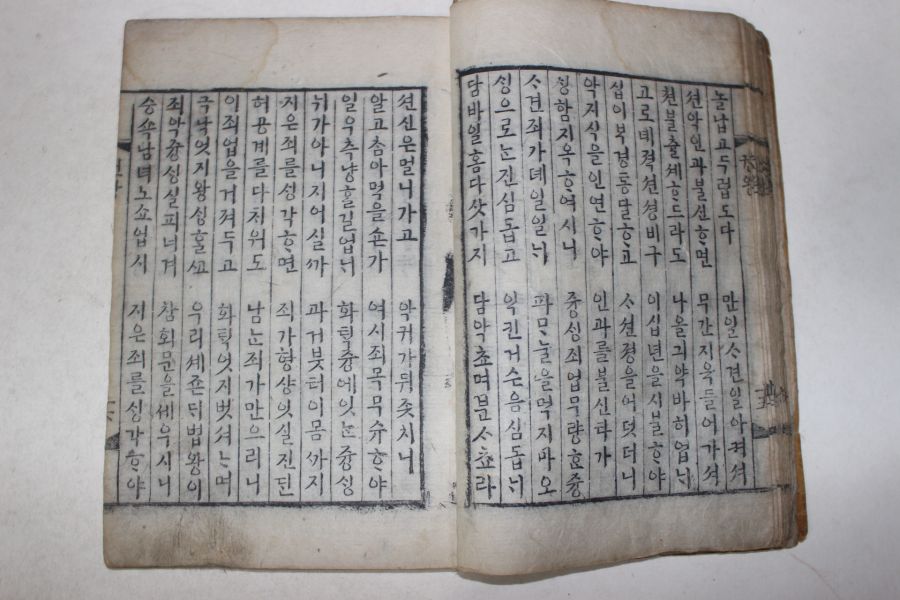 놀납고두렵도다 만일ᄉᆞ견일아켜셔
션악인과불신ᄒᆞ면 무간지옥들어가셔
쳔불츌셰ᄒᆞ드라도 나올긔약바히업ᄂᆡ
고로뎨젹션셩비구 이십년을시봉ᄒᆞ야
십이부경통달ᄒᆞ고 ᄉᆞ션졍을어덧더니
악지식을인연ᄒᆞ야 인과를불신타가
싱함지옥ᄒᆞ여시니 즁싱죄업무량ᄒᆞᆫ즁
ᄉᆞ견죄가뎨일일ᄂᆡ 파마ᄂᆞᆯ을먹지마오
싱으로ᄂᆞᆫ진심돕고 익긴거슨음심돕ᄂᆡ
담바일홈다ᄉᆞᆺ가지 담악쵸며분ᄉᆞ쵸라
션신은멀니가고 악귀가뒤좃치니
알고참아먹을손가 여시죄목무슈ᄒᆞ야
일우측냥ᄒᆞᆯ길업ᄂᆡ 화틱즁에잇ᄂᆞᆫ즁싱
뉘가아니지어실까 과거붓터이몸까지
지은죄를싱각ᄒᆞ면 죄가형샹잇실진딘
허공계를다치워도 남ᄂᆞᆫ죄가만으리니
이죄업을거져두고 화틱엇지벗셔ᄂᆞ며
극낙엇지왕싱ᄒᆞᆯ고 우리셰죤ᄃᆡ법왕이
죄악즁싱실피녀겨 참회문을세우시니
승쇽남녀노쇼업시 지은죄를싱각ᄒᆞ야